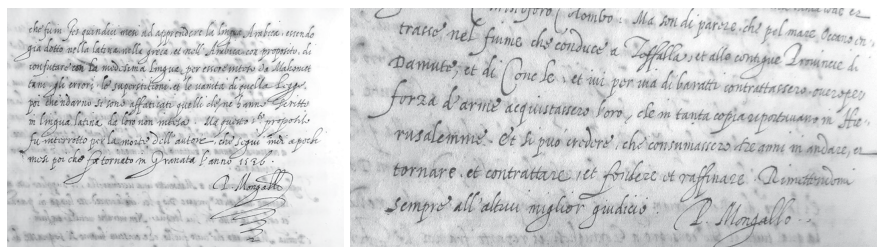 che fum per quindici mesi ad apprender la lingua Arabica, essendo
già dotto nella latina, nella greca, et nell' Arabica con proposito, di
confutare con la medesima lingua, per essere inteso da Mahomet
tani, gli errori, le superstitioni, et le vanità di quella legge.
poi che indarno si sono affaticati quelli che ne hanno scritto
in lingua latina, da loro non intesa. Ma questo proposito
fu interrotto per la morte dell' autore, che seguì mesi apresso
poi che fu tornato in Granata l'anno 1536.
P. Mongallo
Colombo. Ma son di parere, che pel mare Oceano en-
trasse nel fiume che conduce a Zoffalla, et alle contigue Provincie di
Damute, et di Conche, et ivi per via di baratti contrattassero, overo per
forza d'armi acquistassero l'oro, che in tanta copia reportavano in Hie-
rusalemme. Et si puo credere, che consumassero tre anni in andare, et
tornare, et contrattare, et fondere et raffinare. Remettendomi
sempre all' altrui miglior giudicio.
P. Mongallo.